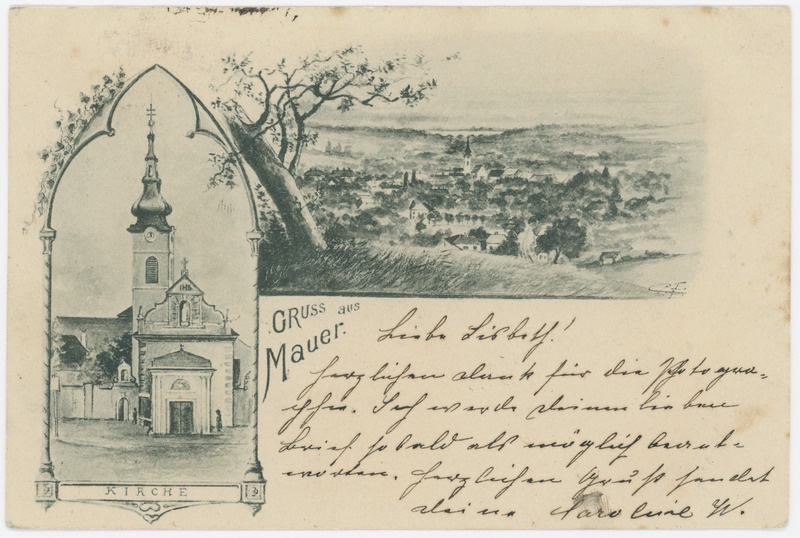 IHS
KIRCHE
GRUSS aus
Mauer.
Liebe Lisbeth!
Herzlichen Dank für die Photogra=
phie. Ich werde deinen lieben
Brief sobald als möglich beant=
worten. Herzlichen Gruß sendet
deine Caroline W.